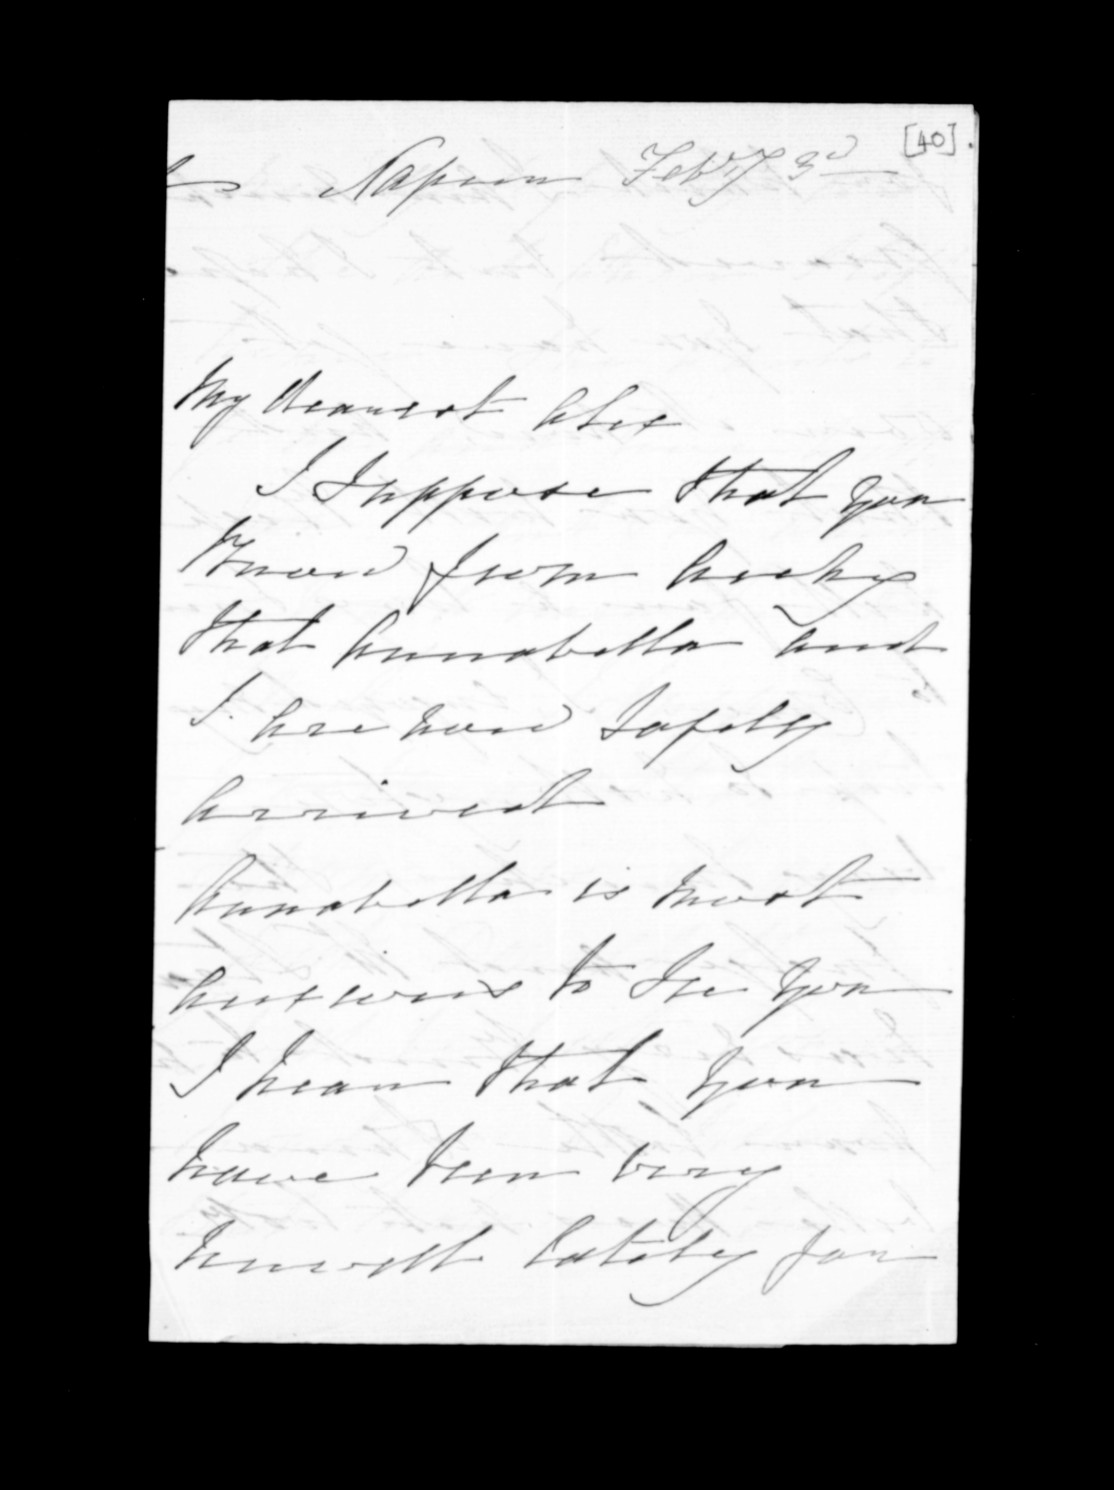 [40].
Napier Feby 3d
My dearest Alex
I Suppose that you
Know from Archy
that Annabella and
I are now Safely
arrived
Annabella is most
anxious to See you
I hear that you
have been very
unwell lately for